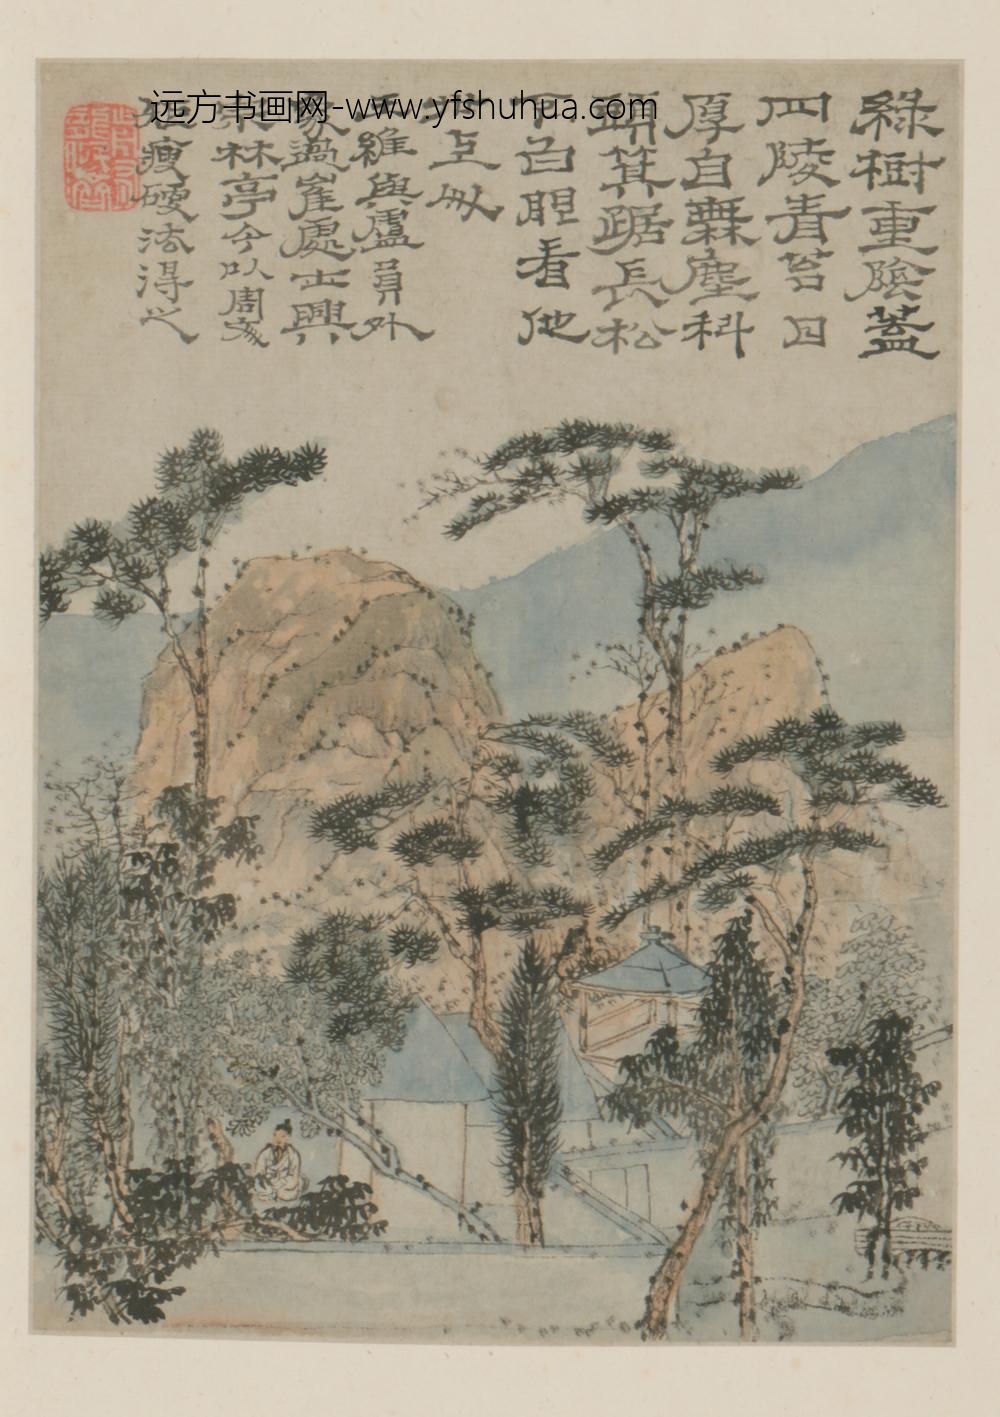 远方书画网-www.yfshuhua.com
綠樹重陰蓋
四隣青苔日
厚自無塵科
頭箕踞長松
下白眼看他
世上人
王維與盧員外
象過崔處士興
宗林亭今以周文
矩瘦硬法得之